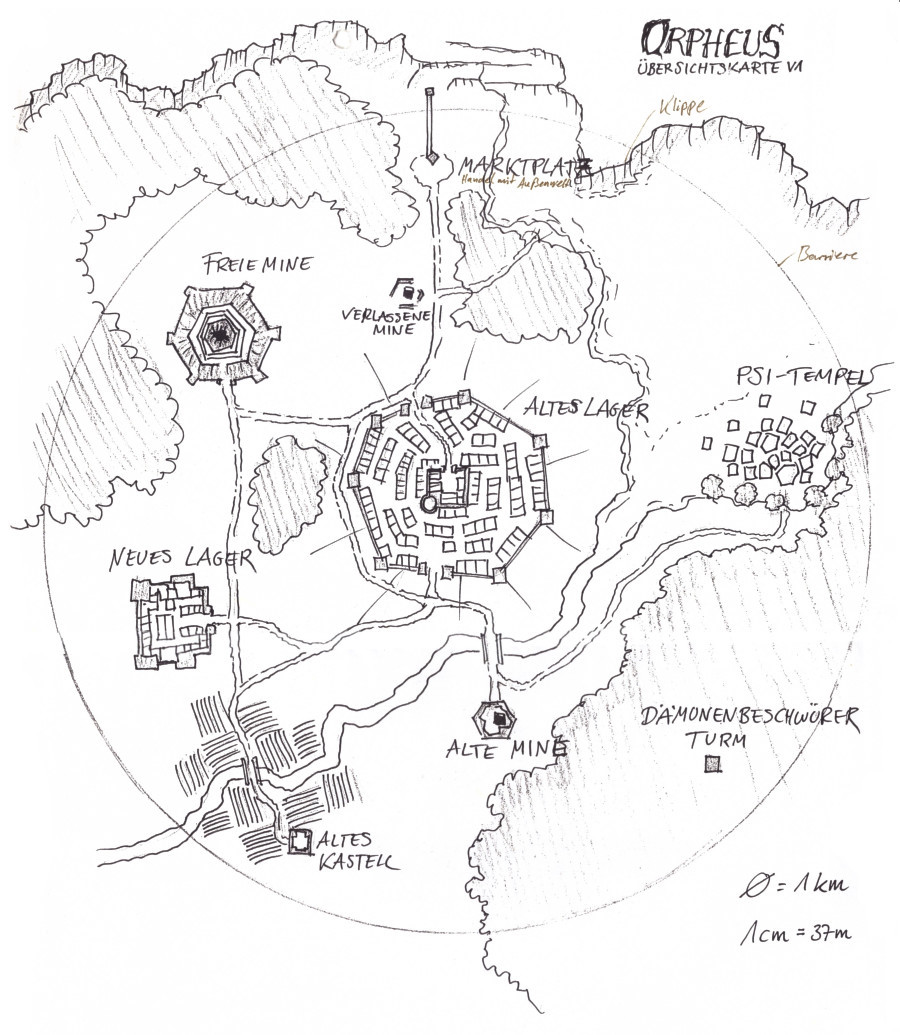 ORPHEUS
ÜBERSICHTSKARTE V1
Klippe
MARKTPLATZ
Handel mit Außenwelt
Barriere
FREIE MINE
VERLASSENE
MINE
PSI-TEMPEL
ALTES LAGER
NEUES LAGER
DÄMONENBESCHWÖRER
TURM
ALTE MINE
ALTES
KASTELL
Ø = 1km
1cm = 37m